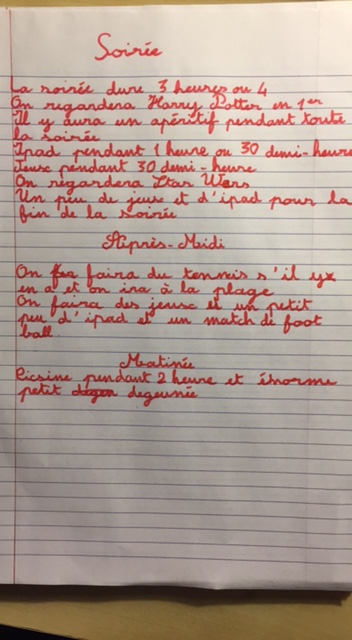 Soirée
La soirée dure 3 heures ou 4
On regardera Harry Potter en 1er
Il y aura un apéritif pendant toute
la soirée
Ipad pendant 1 heure ou 30 demi-heure
Jeux pendant 30 demi-heure
On regardera Star Wers
Un peu de jeux et d'ipad pour la
fin de la soirée
Après-Midi
On faira du tennis s'il y
en a et on ira à la plage
On faira des jeux et un petit
peu d'ipad et un match de foot
ball
Matinée
Picsine pendant 2 heure et énorme
petit degeunée